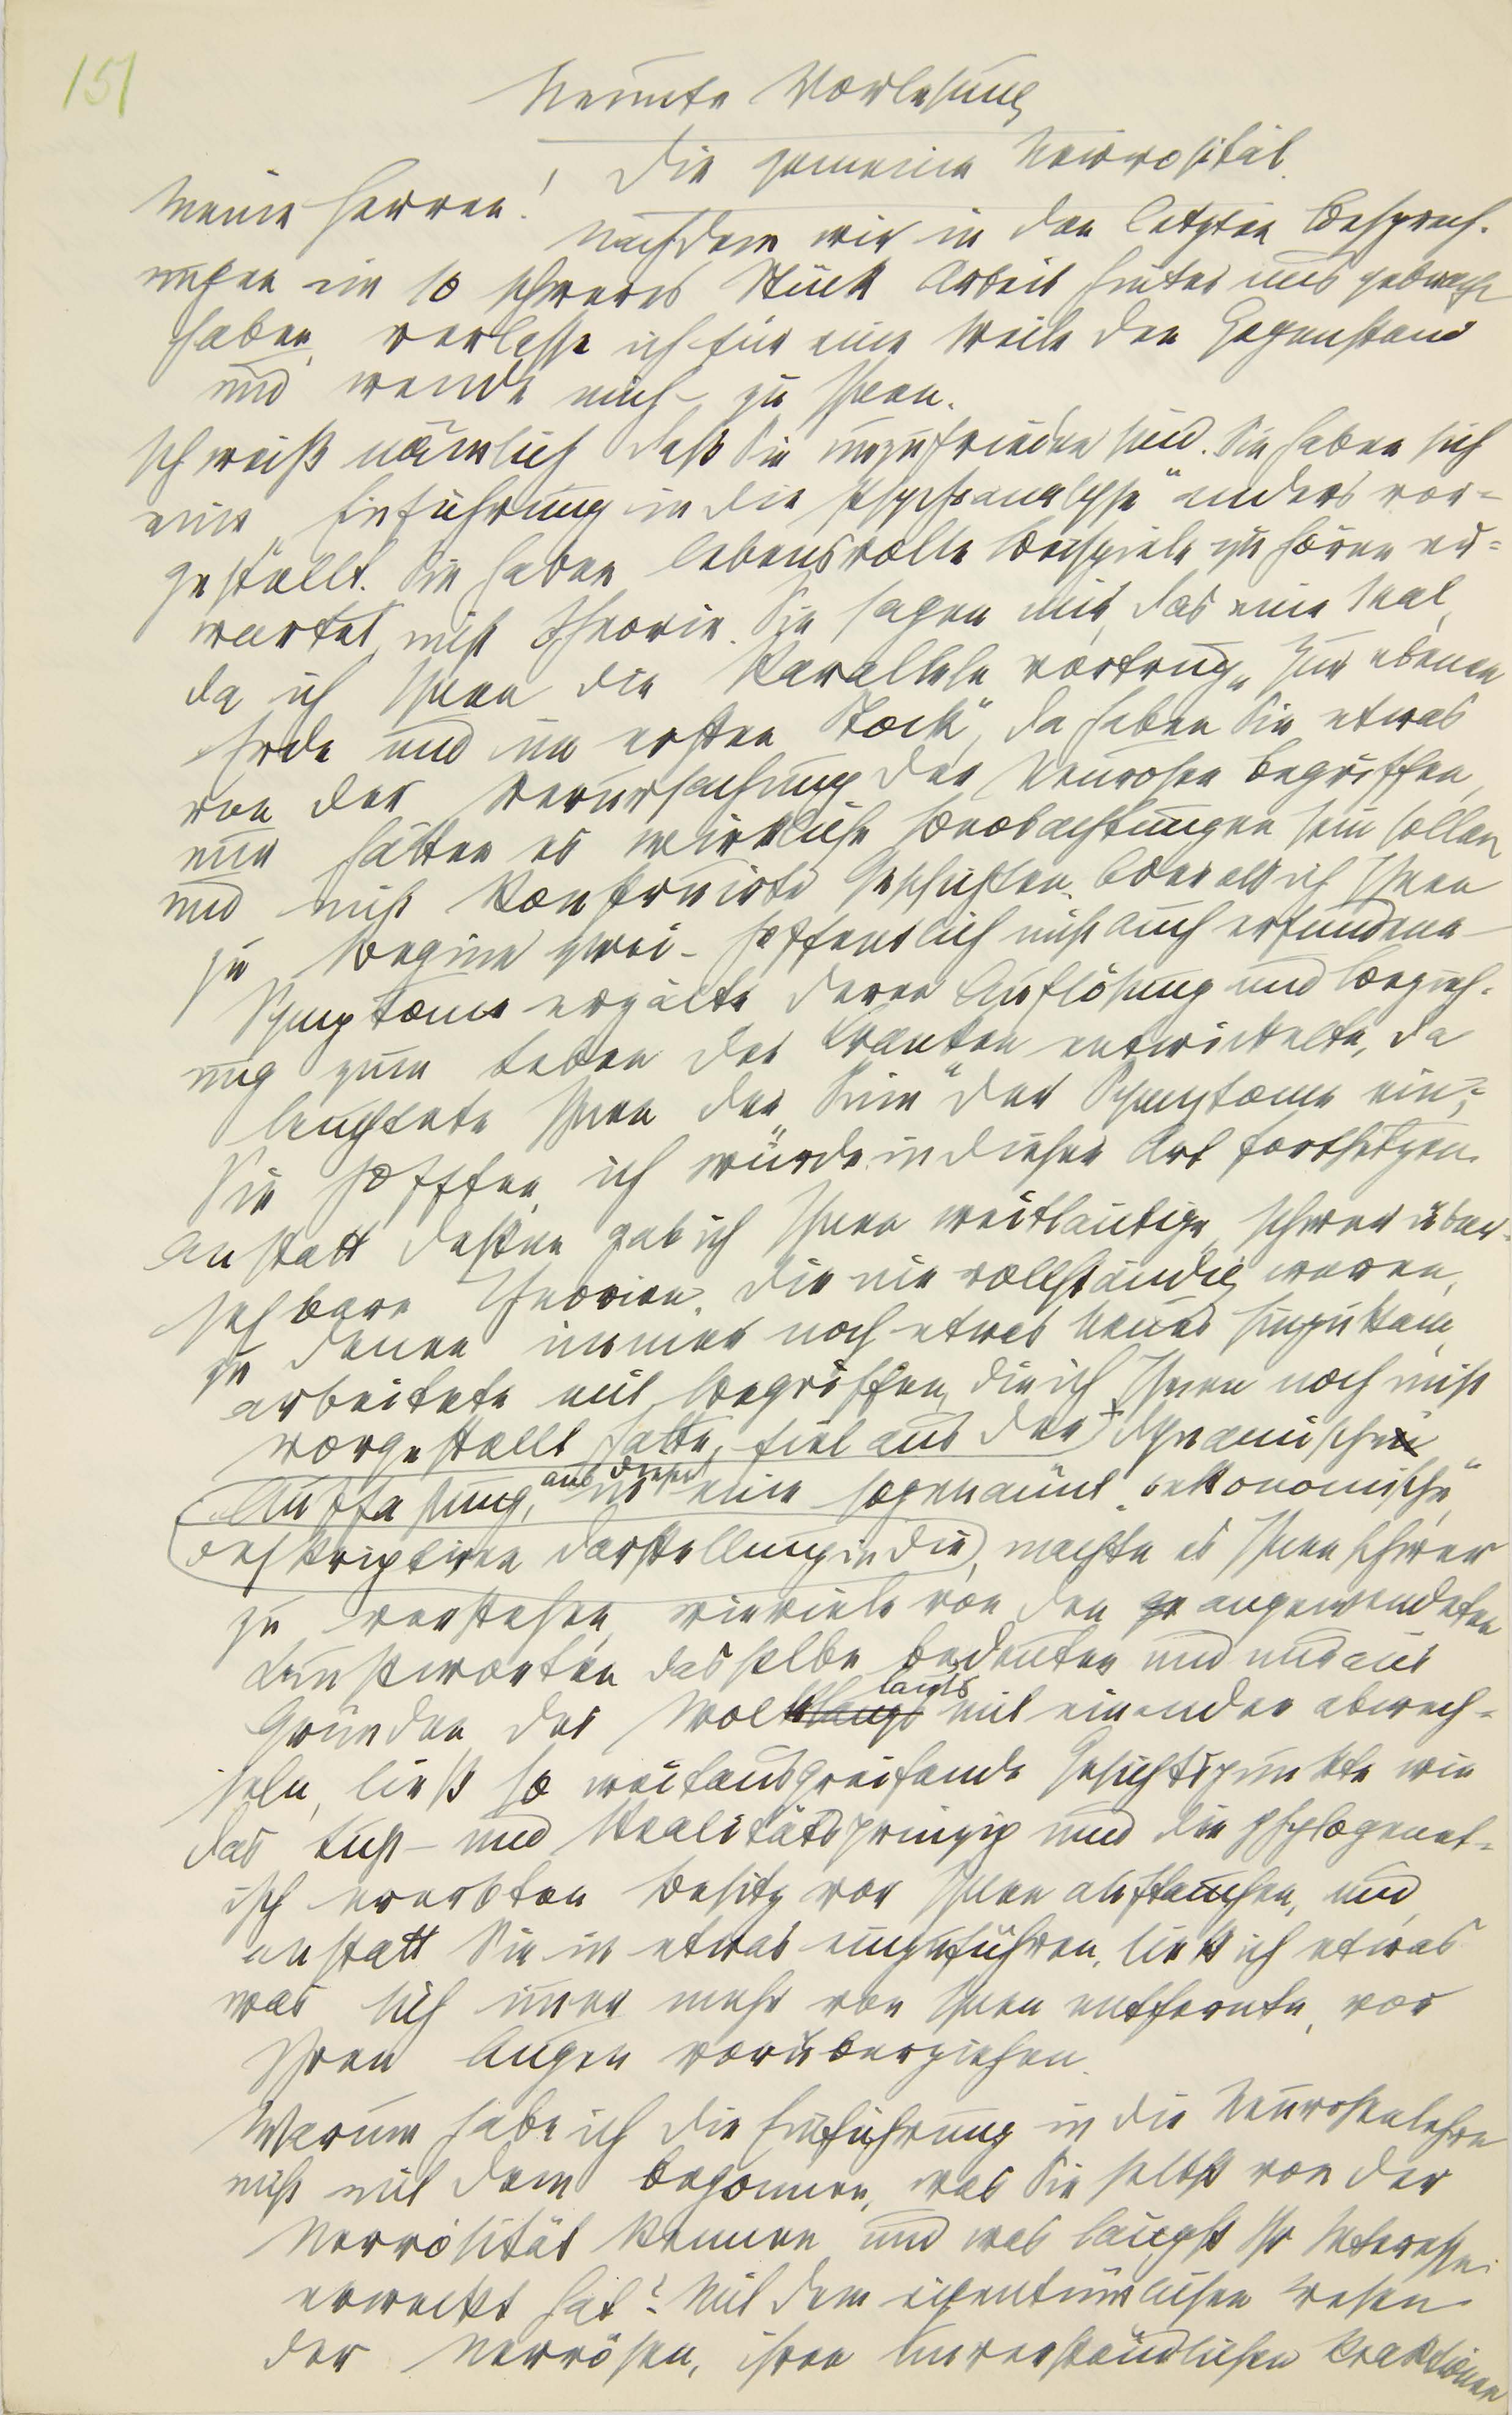 151
Neunte Vorlesung
Die gemeine Nervosität.
Meine Herren!
Nachdem wir in den letzten Besprech-
ungen ein so schweres Stück Arbeit hinter uns gebracht
haben, verlasse ich für eine Weile den Gegenstand
und wende mich zu Ihnen.
Ich weiß nämlich daß Sie unzufrieden sind. Sie haben sich
eine „Einführung in die Psychoanalyse“ anders vor=
gestellt. Sie haben lebensvolle Beispiele zu hören er=
wartet, nicht Theorie. Sie sagen mir, das eine Mal,
da ich Ihnen die Parallele vortrug „Zur ebenen
Erde und im ersten Stock“, da haben Sie etwas
von der Verursachung der Neurosen begriffen,
nur hätten es wirkliche Beobachtungen sein sollen
und nicht konstruirte Geschichten. Oder als ich Ihnen
zu Beginn zwei – hoffentlich nicht auch erfundene –
Symptome erzälte deren Auflösung und Bezieh-
ung zum Leben der Kranken entwickelte, da
leuchtete Ihnen der „Sinn“ der Symptome ein;
Sie hofften, ich würde in dieser Art fortsetzen.
Anstatt dessen gab ich Ihnen weitläufige, schwer über-
sehbare Theorien, die nie vollständig waren,
zu denen immer noch etwas Neues hinzukam,
arbeitete mit Begriffen, die ich Ihnen noch nicht
vorgestellt hatte, fiel aus der dynamischen
Auffassung, aus dieser in eine sogenannt „oekonomische“
deskriptiven Darstellung in die, machte es Ihnen schwer
zu verstehen, wieviele von den ge angewendeten
Kunstworten dasselbe bedeuten und nur aus
Gründen des Wolklangs lauts mit einander abwech-
seln, ließ so weitausgreifende Gesichtspunkte wie
das Lust- und Realitätsprinzip und die phylogenet-
isch ererbten Besitz vor Ihnen auftauchen, und
anstatt Sie in etwas einzuführen, ließ ich etwas
was sich immer mehr von Ihnen entfernte, vor
Ihren Augen vorüberziehen.
Warum habe ich die Einführung in die Neurosenlehre
nicht mit dem begonnen, was Sie selbst von der
Nervosität kennen und was längst Ihr Interesse
erweckt hat? Mit dem eigentümlichen Wesen
der Nervösen, ihren unverständlichen Reaktionen